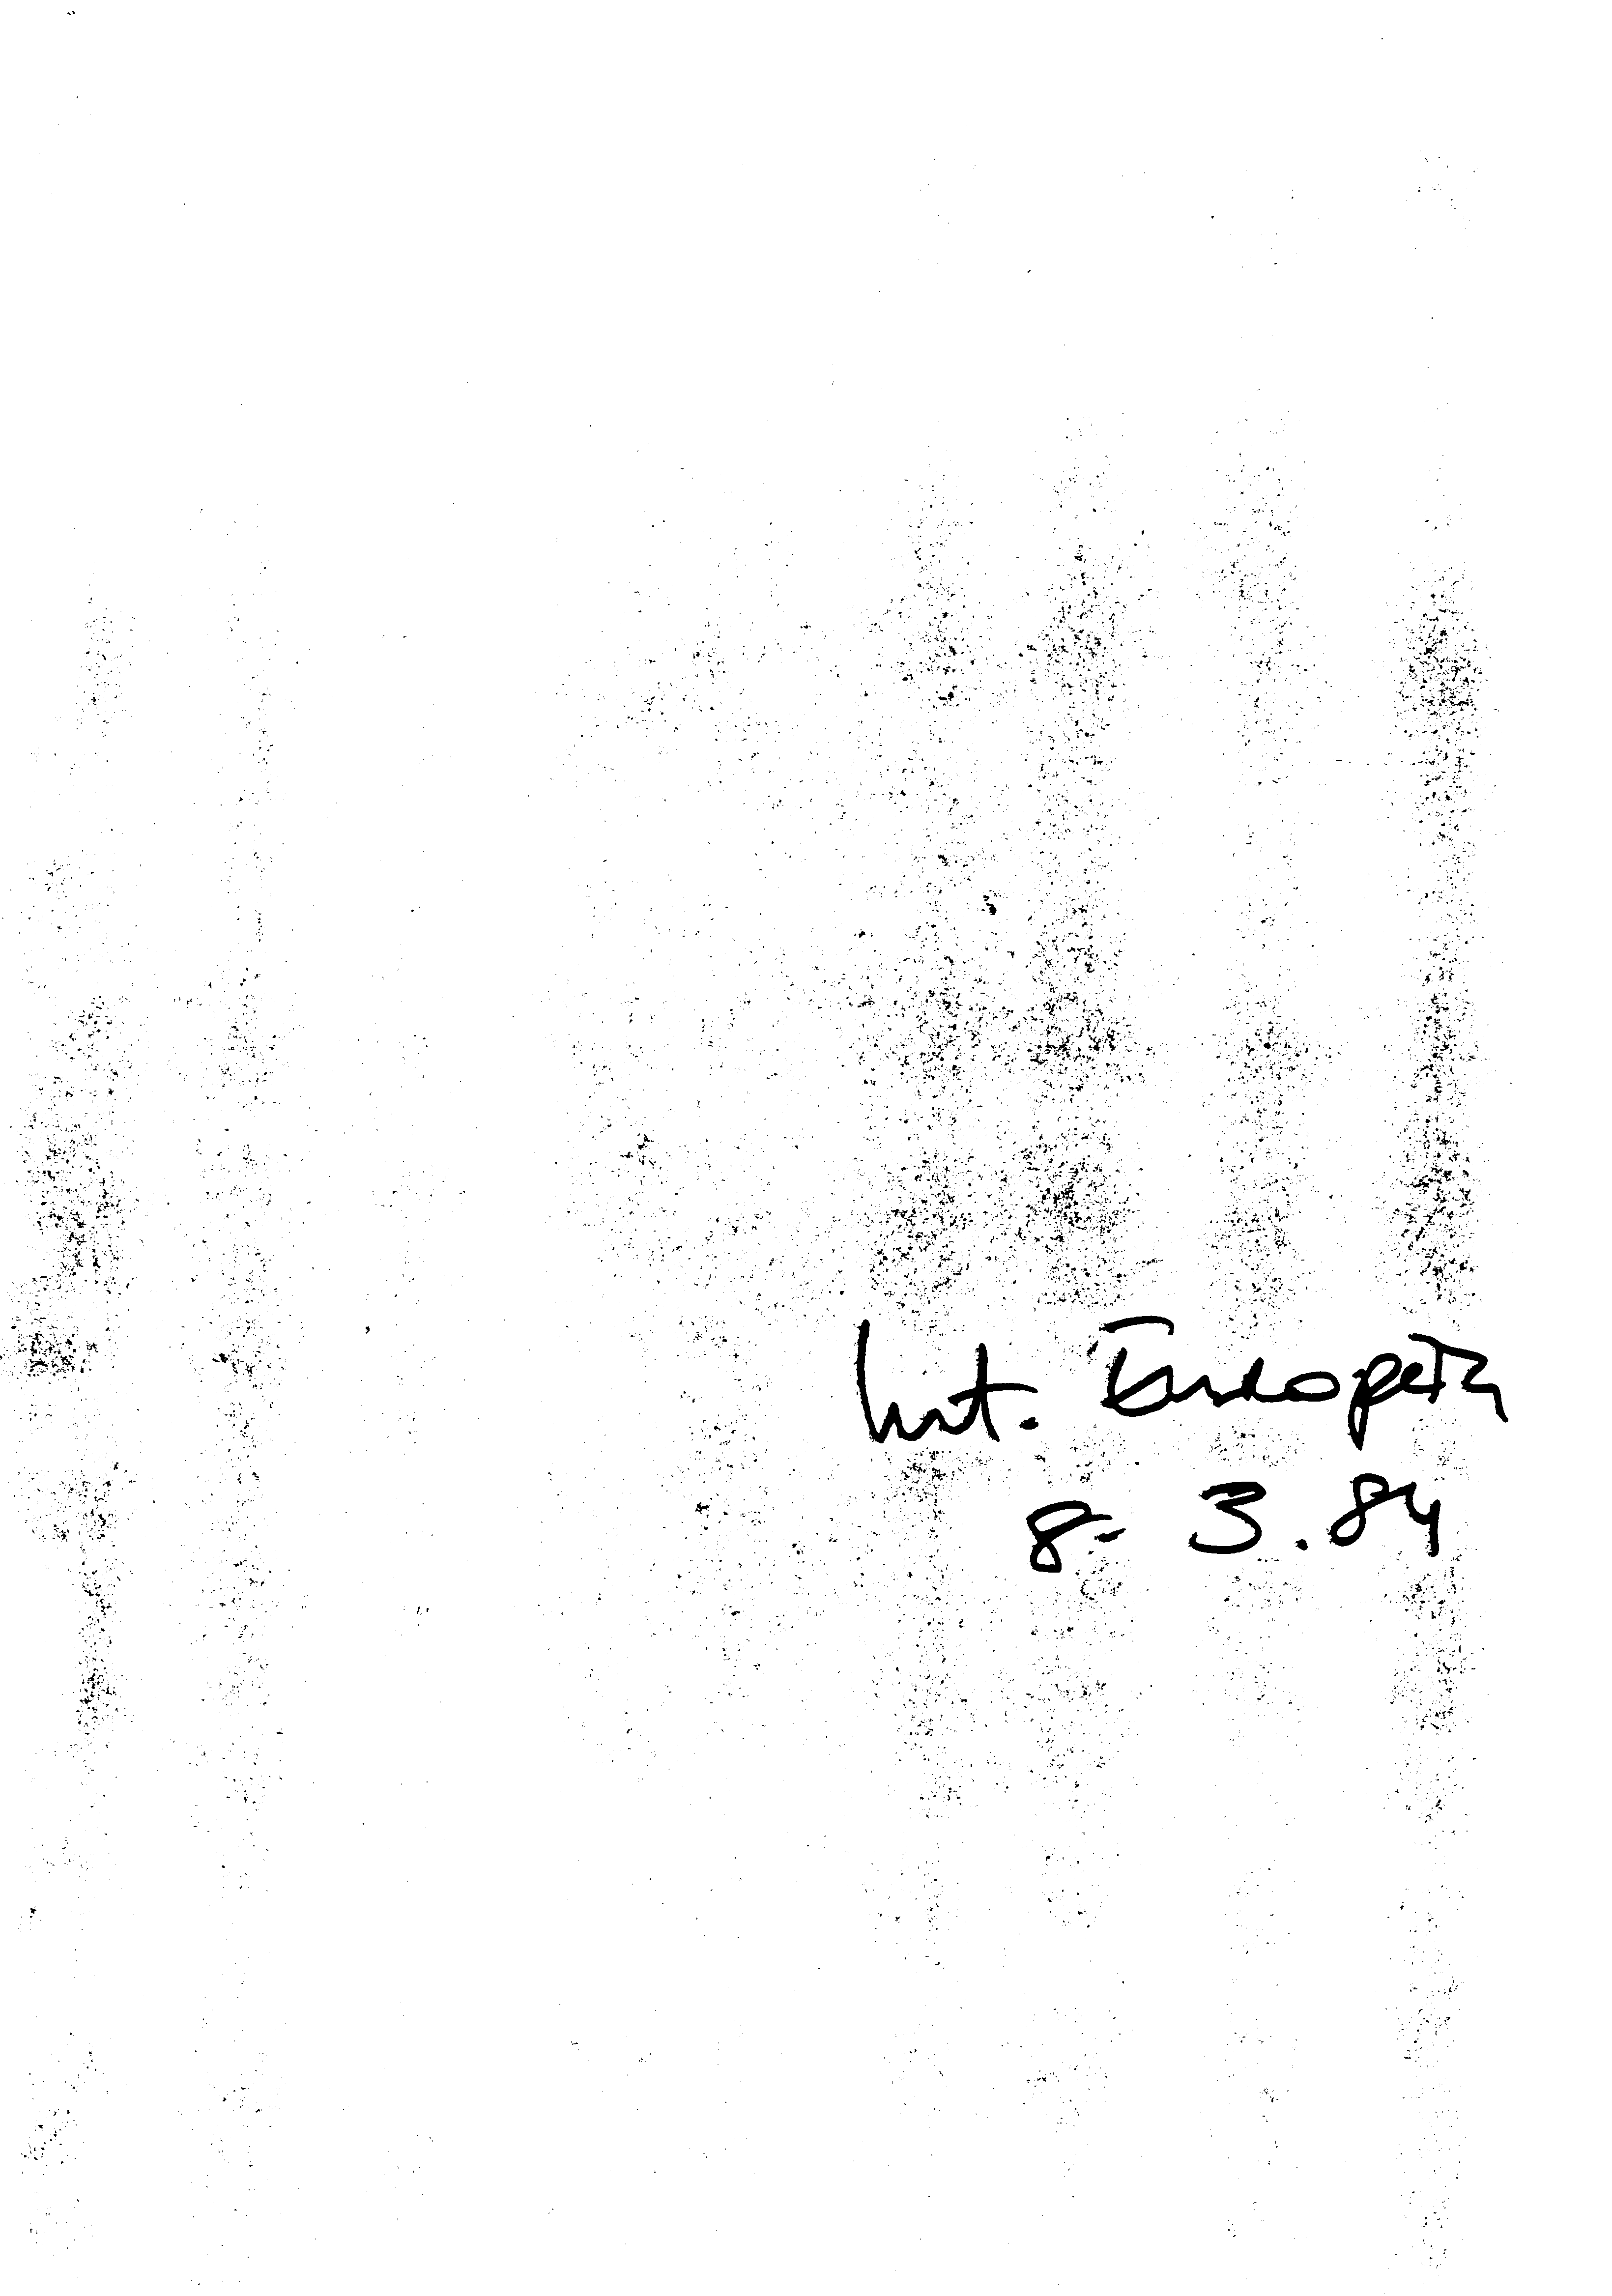 Int. Europea
8-3.84